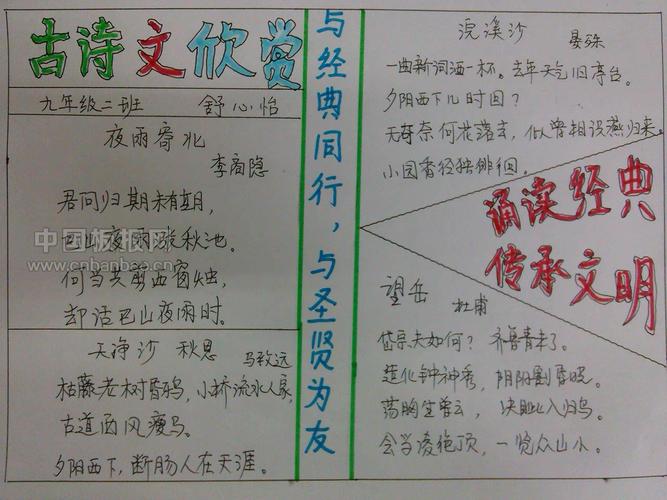 古诗文欣赏
九年级二班 舒心怡
夜雨寄北
李商隐
君问归期未有期,
巴山夜雨涨秋池。
何当共剪西窗烛,
却话巴山夜雨时。
天净沙 秋思 马致远
枯藤老树昏鸦,小桥流水人家,
古道西风瘦马。
夕阳西下,断肠人在天涯。
与经典同行,与圣贤为友
浣溪沙 晏殊
一曲新词酒一杯。去年天气旧亭台。
夕阳西下几时回?
无可奈何花落去,似曾相识燕归来
小园香径独徘徊。
诵读经典
传承文明
望岳 杜甫
岱宗夫如何?齐鲁青未了。
造化钟神秀,阴阳割昏晓。
荡胸生曾云,决眦入归鸟。
会当凌绝顶,一览众山小。
中国板报网
www.cnbanbao.cn